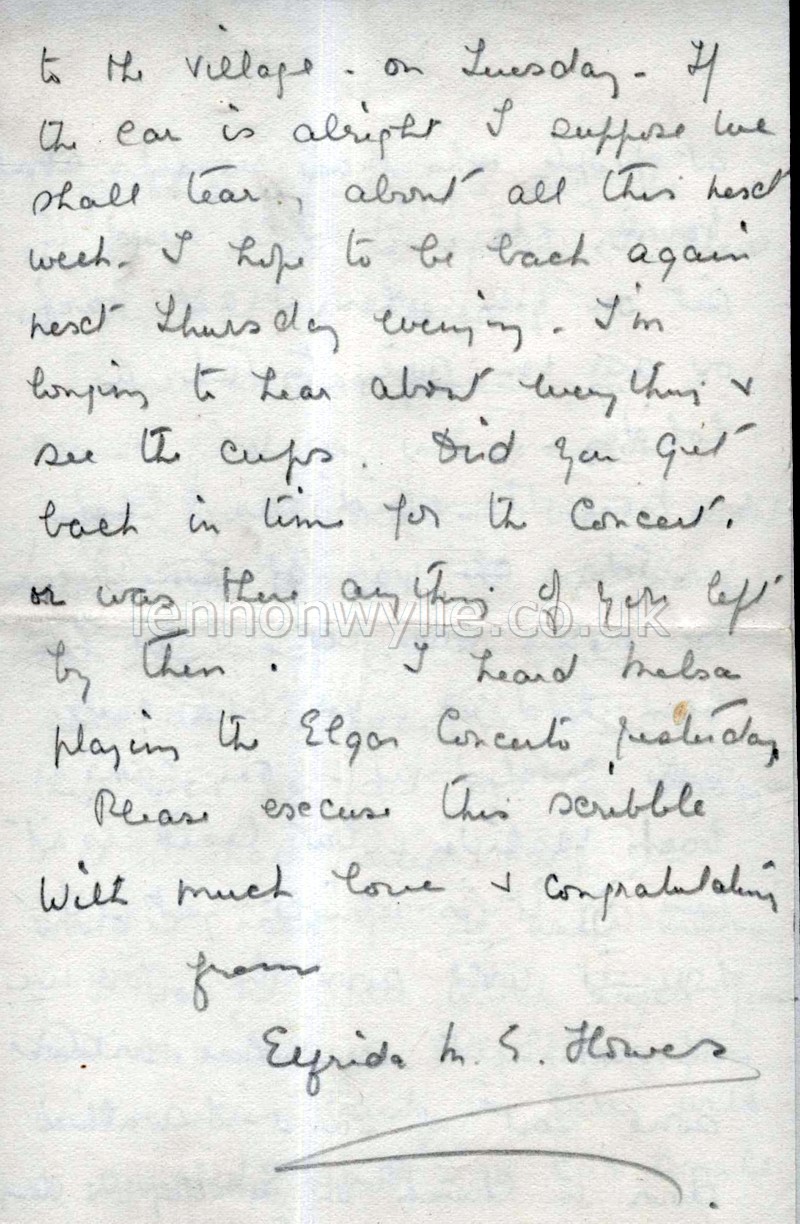 to the village - on Tuesday - If
the car is alright I suppose we
shall tear, about all this next
week - I hope to be back again
next Thursday evening - I'm
longing to hear about everything &
see the cups. Did you get
back in time for the Concert.
or was there anything of you left
lennonwylie.co.uk
by then. I heard Melsa
playing the Elgar Concerto yesterday
Please excuse this scribble
With much love & congratulations
from
Elfrida M. E. Howes